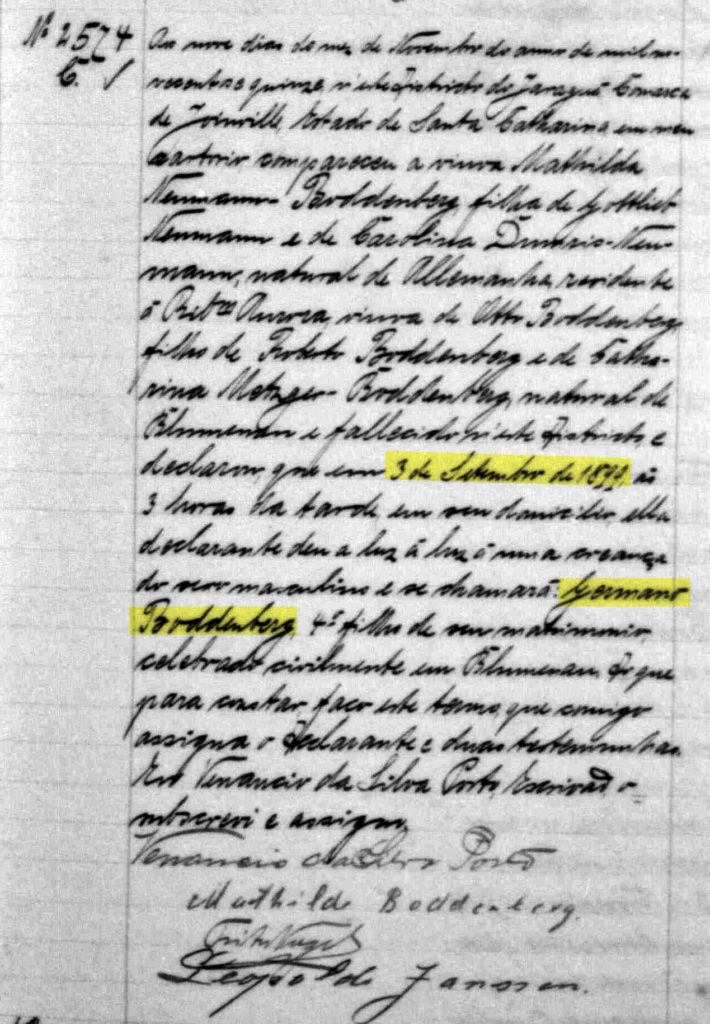 Nº 2574
Aos nove dias do mez de Novembro do anno de mil no-
vecentos e quinze, n'este Districto do Jaraguá Comarca
de Joinville, Estado de Santa Catharina, em meu
Cartorio, compareceu a viuva Mathilda
Neumann-Boddenberg, filha de Gottlieb
Neumann e de Carolina Neu-
mann, natural de Allemanha, residente
á Ribrão Aurora, viuva de Otto Boddenberg,
filho de Roberto Boddenberg e de Catha-
rina Metzger-Boddenberg, natural de
Blumenau e fallecido n'este Districto, e
declarou, que em 3 de Setembro de 1899, ás
3 horas da tarde, em seu domicilio, ella
declarante deu a luz á luz á uma creança
do sexo masculino e se chamará: Germano
Boddenberg, 4º filho de seu matrimonio,
celebrado civilmente em Blumenau. Do que
para constar, faço este termo, que comigo
assigna o declarante e duas testemunhas.
Eu Venancio da Silva Porto, Escrivão o
subscrevi e assigno.
Venancio da Silva Porto
Mathilde Boddenberg.
Fritz Vogel
Leopoldo Janssen.